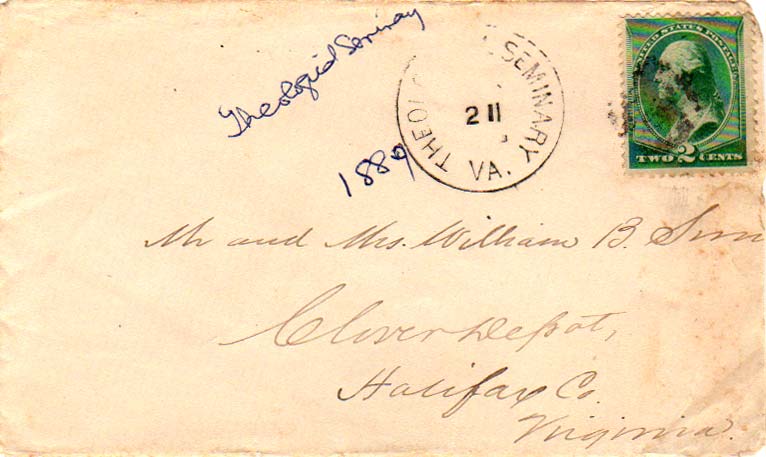 Theological Seminary
1889
THEO SEMINARY
2 11
VA.
UNITED STATES POSTAGE
TWO 2 CENTS
Mr and Mrs. William B. Sim
Clover Depot,
Halifax Co.
Virginia.